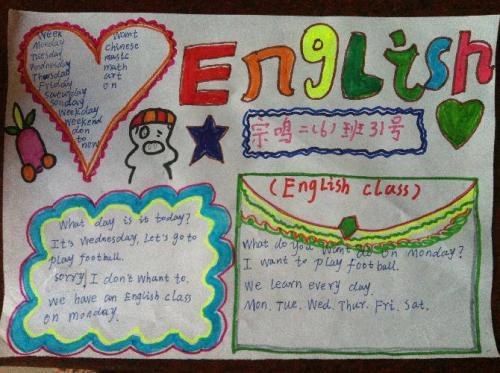 Week
Monday
Tuesday
Wednesday
Thursday
Friday
Saturday
Sunday
Weekday
Weekend
den
to
now
Want
Chinese
music
math
art
on
English
宗鸣二(6)班31号
What day is it today?
It's Wednesday, Let's go to
play football.
sorry I don't whant to.
We have an English class
on monday.
(English class)
What do you want do on Monday?
I want to play football.
We learn every day.
Mon. Tue. Wed. Thur. Fri. Sat.